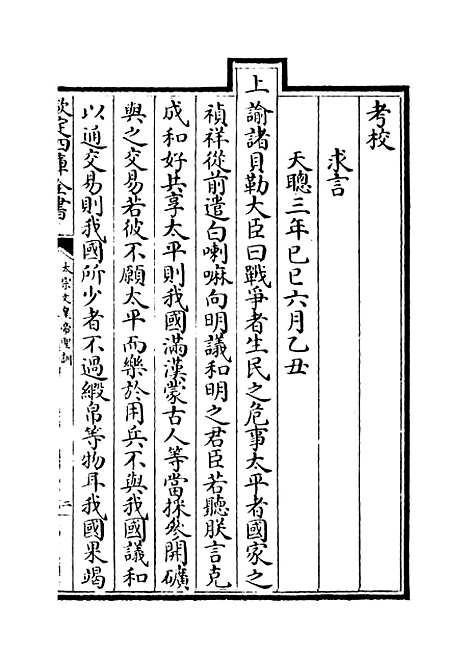 考校
求言
天聰三年己巳六月乙丑
上諭諸貝勒大臣曰戰爭者生民之危事太平者國家之
禎祥從前遣白喇嘛向明議和明之君臣若聽朕言克
成和好共享太平則我國滿漢蒙古人等當採參開礦
與之交易若彼不願太平而樂於用兵不與我國議和
以通交易則我國所少者不過緞帛等物耳我國果竭
欽定四庫全書
太宗文皇帝聖訓